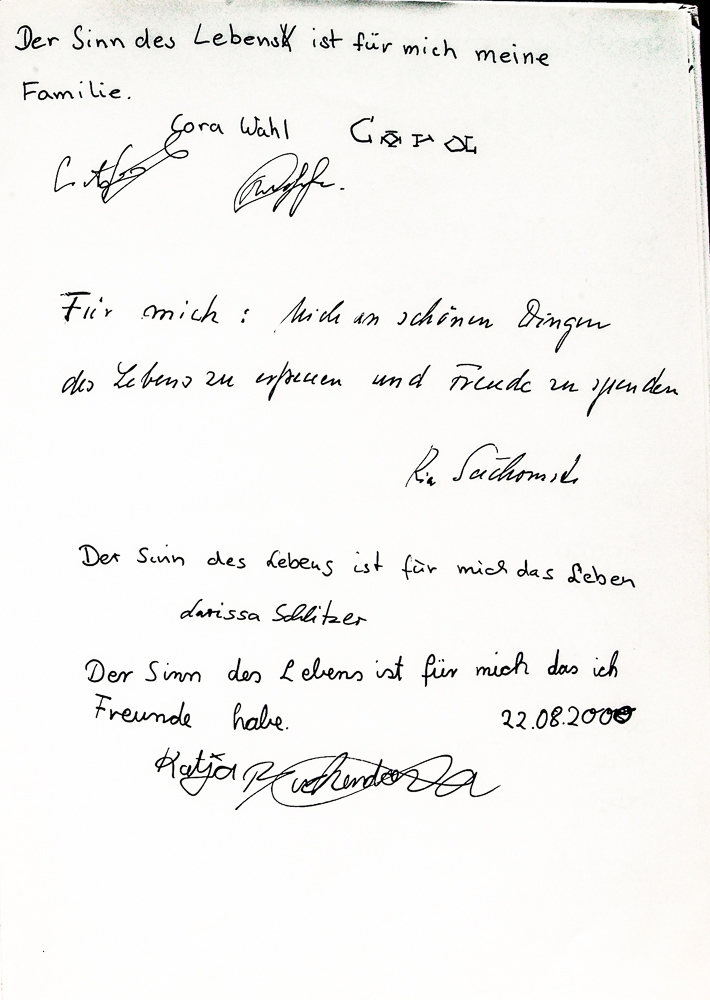 Der Sinn des Lebens ist für mich meine
Familie.
Cora Wahl
Für mich: Mich an schönen Dingen
des Lebens zu erfreuen und Freude zu spenden
Ria
Der Sinn des Lebens ist für mich das Leben
Larissa Schlitzer
Der Sinn des Lebens ist für mich das ich
Freunde habe. 22.08.2000
Katja